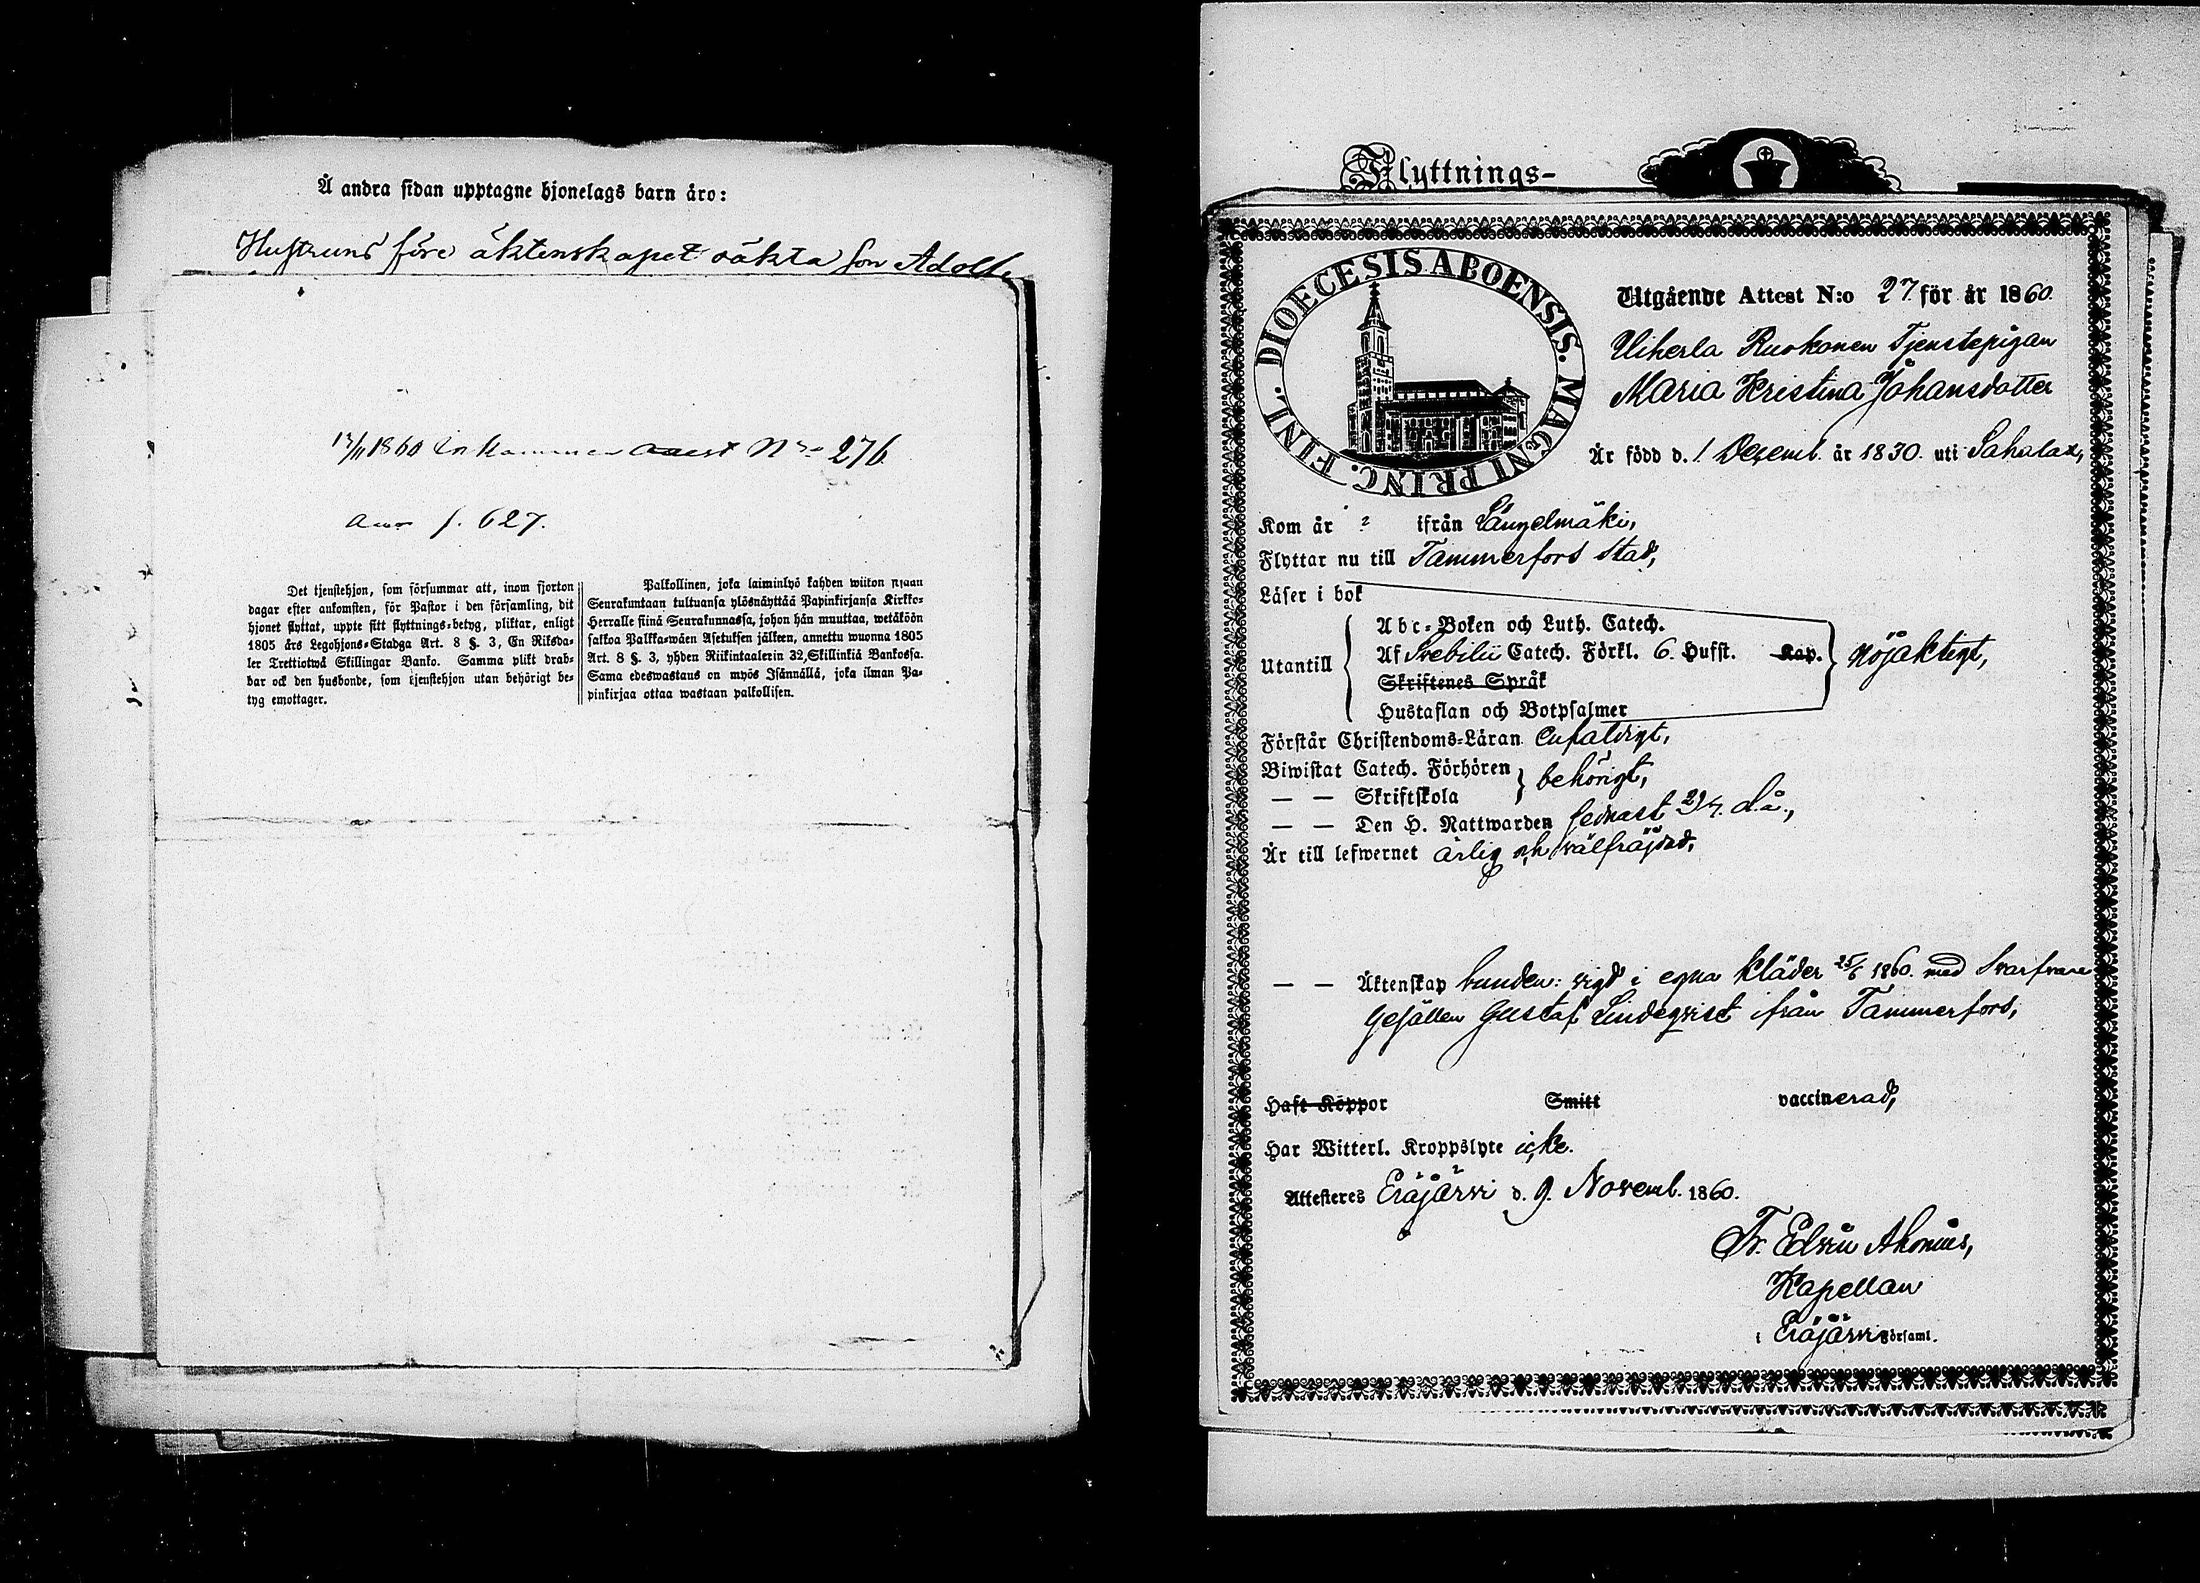 Å andra sidan upptagne hjonelags barn äro:
Hustruns före äktenskapet oäkta son Adolf,
13/11 1860 Inkommen attest N:o 276.
f. 627.
Det tjenstehjon, som försummar att, inom fjorton
dagar efter ankomsten, för Pastor i den församling, dit
hjonet flyttat, uppte sitt flyttnings-betyg, pliktar, enligt
1805 års Legohjons-Stadga Art. 8 §. 3, En Riksda-
ler Trettiotwå Skillingar Banko. Samma plikt drab-
bar ock den husbonde, som tjenstehjon utan behörigt be-
tyg emottager.
Palkollinen, joka laiminlyö kahden wiikon sisään
Seurakuntaan tultuansa ylösnäyttää Papinkirjansa Kirkko-
Herralle siinä Seurakunnassa, johon hän muuttaa, wetäköön
sakkoa Palkka-wäen Asetuksen jälkeen, annettu wuonna 1805
Art. 8 §. 3, yhden Riikintaalerin 32 Skillinkiä Bankossa.
Sama edeswastaus on myös Isännällä, joka ilman Pa-
pinkirjaa ottaa wastaan palkollisen.
Flyttnings-
DIOECESIS ABOENSIS. MAGNI PRINC. FINL.
Utgående Attest N:o 27 för år 1860.
Uiherla Ruokonen Tjenstepigan
Maria Kristina Johansdotter
Är född d. 1 Decemb. år 1830. uti Sahalax,
Kom år ? ifrån Längelmäki,
Flyttar nu till Tammerfors Stad,
Läser i bok
Utantill
Abc-Boken och Luth. Catech.
Af Svebilii Catech. Förkl. 6. Hufst. Kap.
Skriftenes Språk
Hustaflan och Botpsalmer
nöjaktigt,
Förstår Christendoms-Läran enfaldigt,
Biwistat Catech. Förhören
— — Skriftskola
behörigt,
— — Den H. Nattwarden sednast 29/7. d.å.,
Är till lefwernet ärlig och välfräjdad,
— — Äktenskap bunden: vigd i egna kläder 25/6 1860. med Svarfvare
Gesällen Gustaf Lindeqvist ifrån Tammerfors,
Haft Koppor Smitt vaccinerad,
Har Witterl. Kroppslyte icke.
Attesteres Eräjärvi d. 9. Novemb. 1860.
Fr. Edvin Ahonius,
Kapellan
i Eräjärvi Församl.